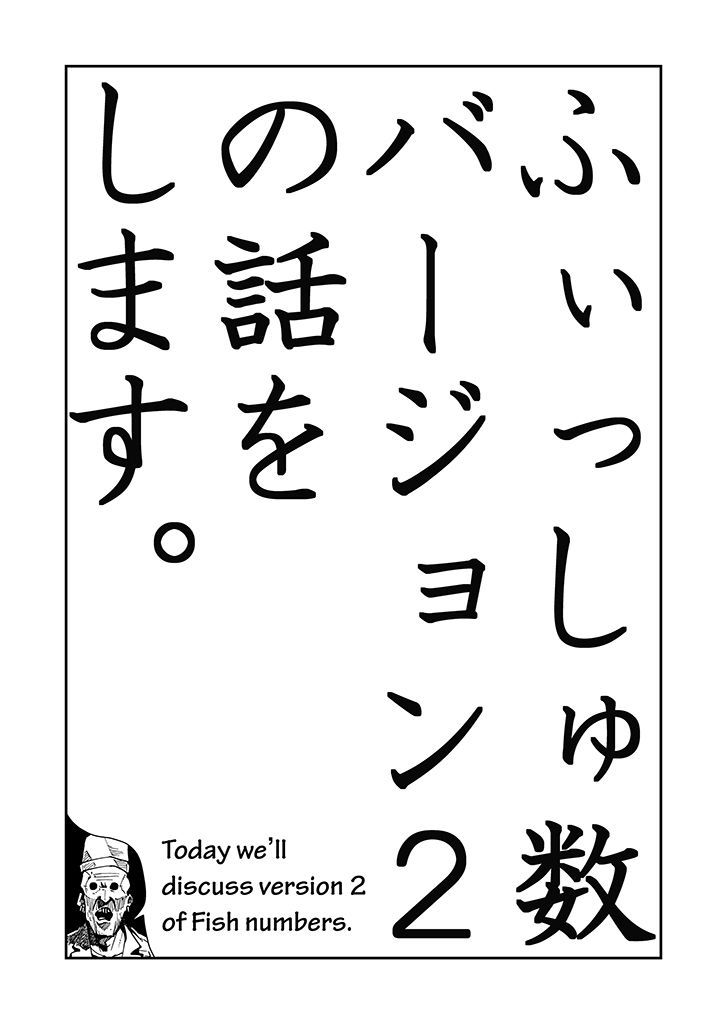 ふぃっしゅ数
バージョン2
の話を
します。
Today we'll
discuss version 2
of Fish numbers.